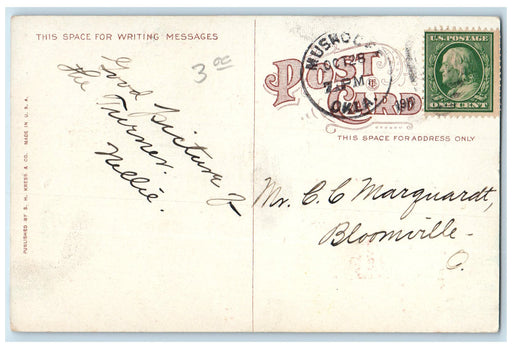 THIS SPACE FOR WRITING MESSAGES
3 00
Good picture of
the Turner.
Nellie.
PUBLISHED BY S. H. KRESS & CO. MADE IN U.S.A.
POST
CARD
MUSKOGEE
OCT
PM
OKLA.
U.S. POSTAGE
ONE CENT
THIS SPACE FOR ADDRESS ONLY
Mr. C. C Marquardt,
Bloomville
O.